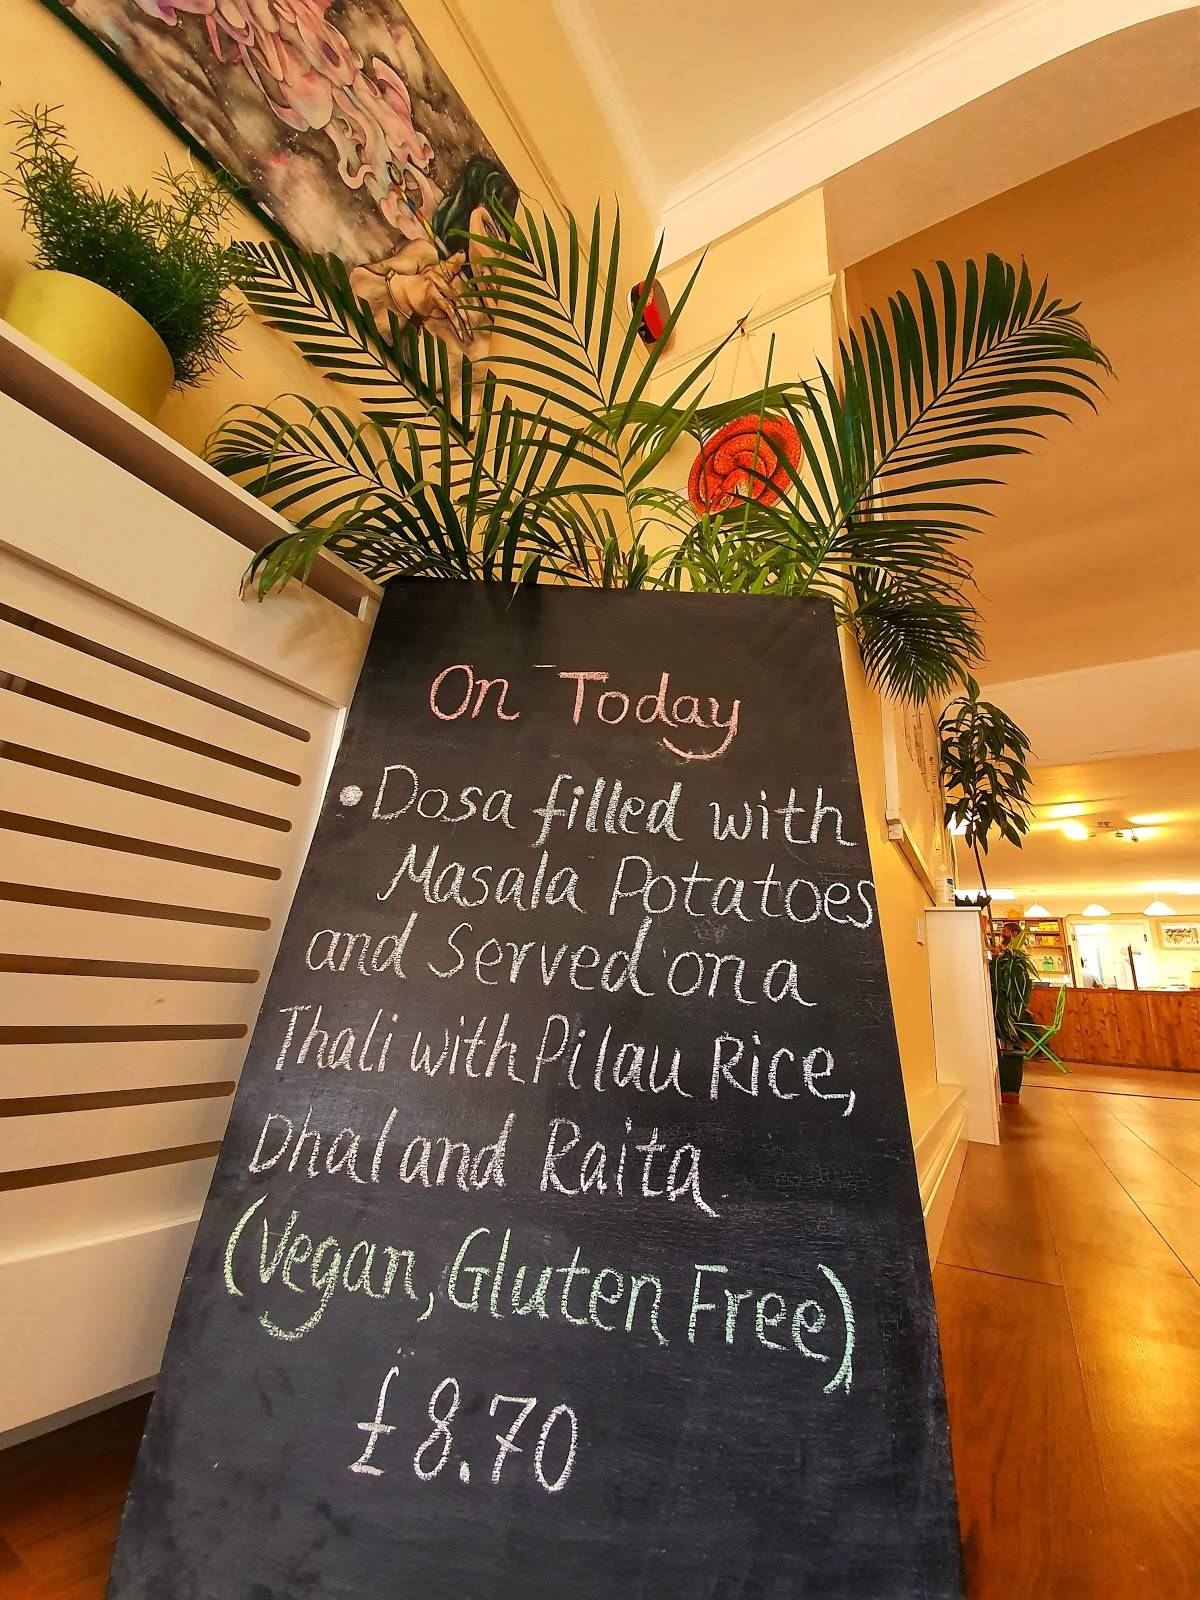 On Today
• Dosa filled with
Masala Potatoes
and Served on a
Thali with Pilau Rice,
Dhal and Raita
(Vegan, Gluten Free)
£8.70